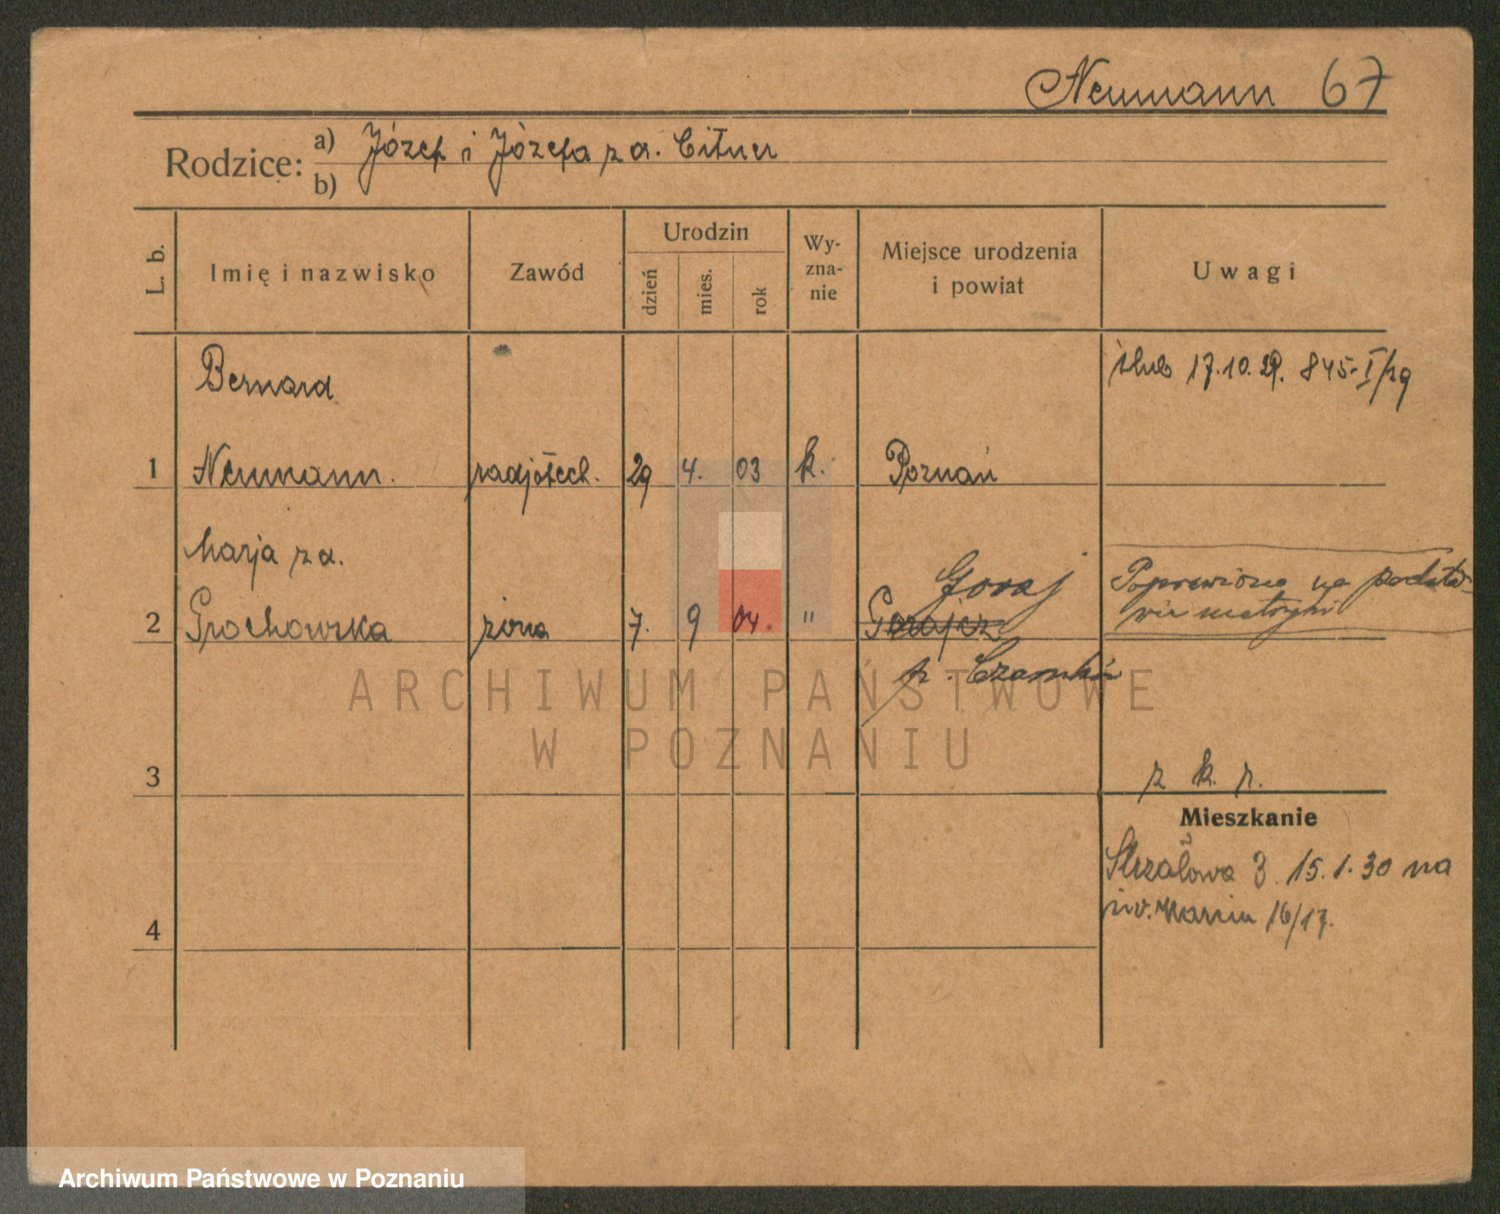 Neumann 67
Rodzice: a) Józef i Józefa z d. Citner
b)
L. b.
Imię i nazwisko
Zawód
Urodzin
dzień
mies.
rok
Wy-
zna-
nie
Miejsce urodzenia
i powiat
Uwagi
Bernard
ślub 17.10.29. 845
1 Neumann. radjotech. 29 4. 03 k. Poznań
Marja z d.
Goraj
Poprawiono na podsta-
wie metryki
2 Grochowska żona 7. 9 04. " Gorajcz
p. Czarnków
ARCHIWUM PAŃSTWOWE
W POZNANIU
3
z k. r.
Mieszkanie
Strzałowa 3. 15.1.30 na
św. Marcin 16/17.
4
Archiwum Państwowe w Poznaniu